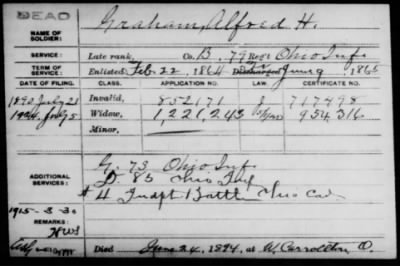 DEAD
NAME OF SOLDIER: Graham, Alfred H.
SERVICE: Late rank, Co. B, 79 Reg't Ohio Inf.
TERM OF SERVICE: Enlisted Feb. 22, 1864 Discharged June 9, 1865
DATE OF FILING. CLASS. APPLICATION NO. CERTIFICATE NO.
1890 July 21 Invalid, 852171 717498
July 5 Widow, 1,221,243 954,316
Minor,
ADDITIONAL SERVICES: G. 73 Ohio Inf.
D. 85 Ohio Inf.
#4 Indpt Battln Ohio Cav.
1915-3-30
REMARKS:
Died June 24, 1894, at W. Carrolton O.